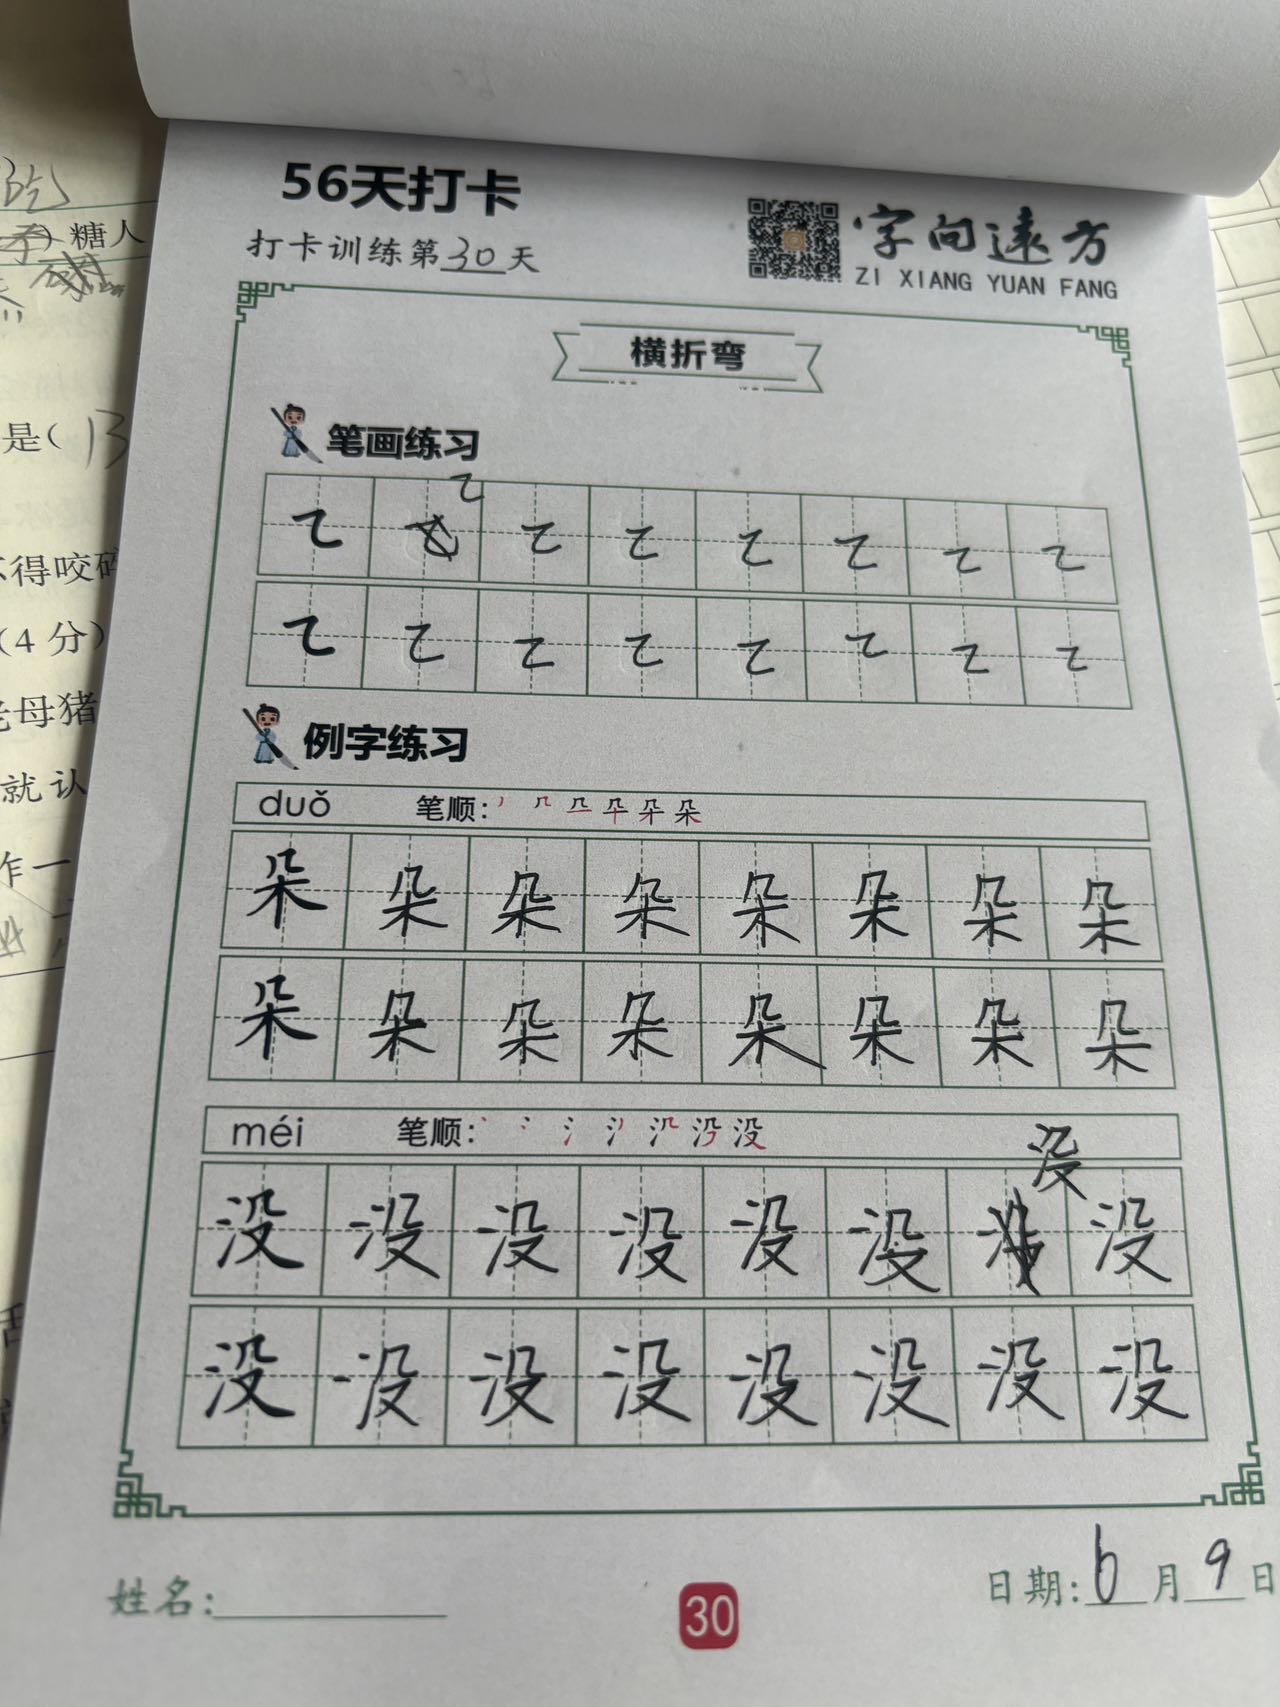 56天打卡
打卡训练第30天
字向远方
ZI XIANG YUAN FANG
横折弯
笔画练习
例字练习
duǒ 笔顺:
朵 朵 朵 朵 朵 朵 朵 朵
朵 朵 朵 朵 朵 朵 朵 朵
méi 笔顺:
没
没 没 没 没 没 没 没
没 没 没 没 没 没 没 没
姓名:
30
日期:6月9日
糖人
是( 13
得咬碎
(4分)
母猪
就认
作一